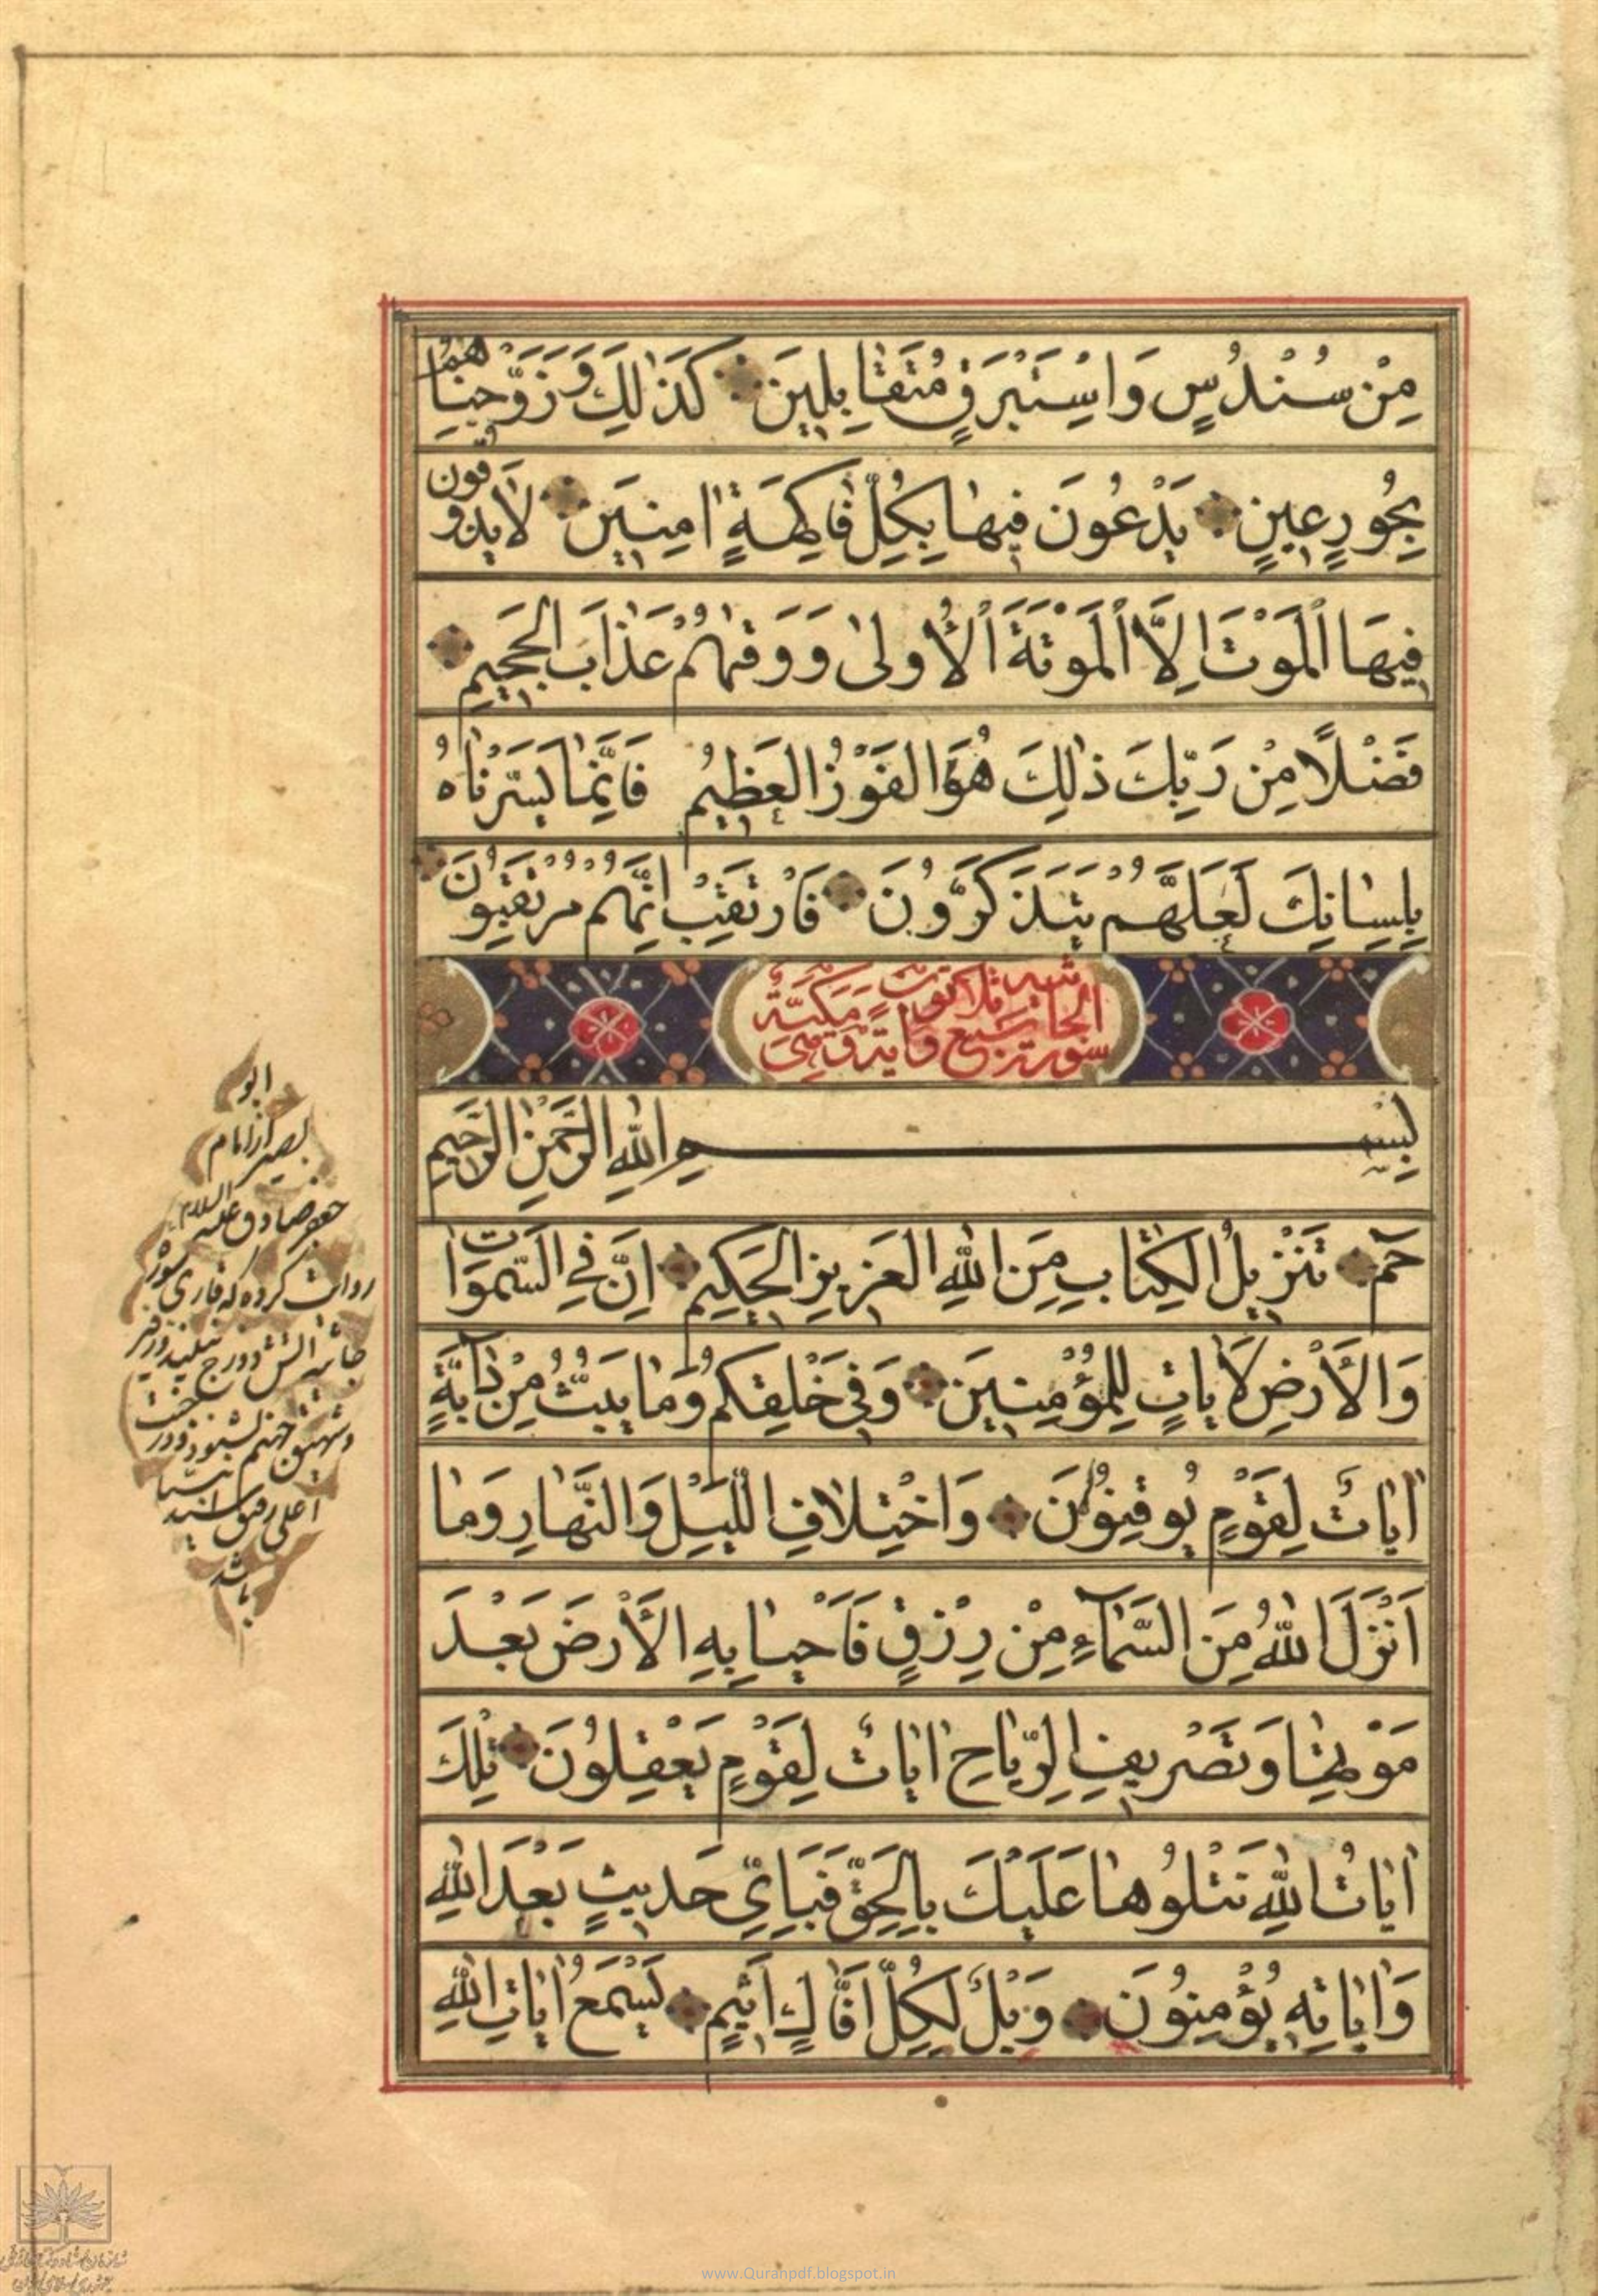 مِنْ سُنْدُسٍ وَاِسْتَبْرَقٍ مُتَقَابِلِينَ كَذٰلِكَ وَزَوَّجْنَاهُمْ
بِحُورٍ عِينٍ يَدْعُونَ فِيهَا بِكُلِّ فَاكِهَةٍ اٰمِنِينَ لَا يَذُوقُونَ
فِيهَا الْمَوْتَ اِلَّا الْمَوْتَةَ الْأُولىٰ وَوَقٰهُمْ عَذَابَ الْجَحِيمِ
فَضْلًا مِنْ رَبِّكَ ذٰلِكَ هُوَ الْفَوْزُ الْعَظِيمُ فَاِنَّمَا يَسَّرْنَاهُ
بِلِسَانِكَ لَعَلَّهُمْ يَتَذَكَّرُونَ فَارْتَقِبْ اِنَّهُمْ مُرْتَقِبُونَ
سورة الجاثية سبع وثلاثون اية وهي مكية
بِسْمِ اللّٰهِ الرَّحْمٰنِ الرَّحِيمِ
حٰمٓ تَنْزِيلُ الْكِتَابِ مِنَ اللّٰهِ الْعَزِيزِ الْحَكِيمِ اِنَّ فِي السَّمٰوَاتِ
وَالْأَرْضِ لَاٰيَاتٍ لِلْمُؤْمِنِينَ وَفِي خَلْقِكُمْ وَمَا يَبُثُّ مِنْ دَابَّةٍ
اٰيَاتٌ لِقَوْمٍ يُوقِنُونَ وَاخْتِلَافِ اللَّيْلِ وَالنَّهَارِ وَمَا
اَنْزَلَ اللّٰهُ مِنَ السَّمَاءِ مِنْ رِزْقٍ فَاَحْيَا بِهِ الْأَرْضَ بَعْدَ
مَوْتِهَا وَتَصْرِيفِ الرِّيَاحِ اٰيَاتٌ لِقَوْمٍ يَعْقِلُونَ تِلْكَ
اٰيَاتُ اللّٰهِ نَتْلُوهَا عَلَيْكَ بِالْحَقِّ فَبِاَيِّ حَدِيثٍ بَعْدَ اللّٰهِ
وَاٰيَاتِهِ يُؤْمِنُونَ وَيْلٌ لِكُلِّ اَفَّاكٍ اَثِيمٍ يَسْمَعُ اٰيَاتِ اللّٰهِ
ابو
بصير از امام
جعفر صادق عليه السلام
روايت كرده كه قارى سوره
جاثيه آتش دوزخ نبيند و زفير
وشهيق جهنم نشنود و در جنت
اعلى رفيق
باشد
www.Quranpdf.blogspot.in